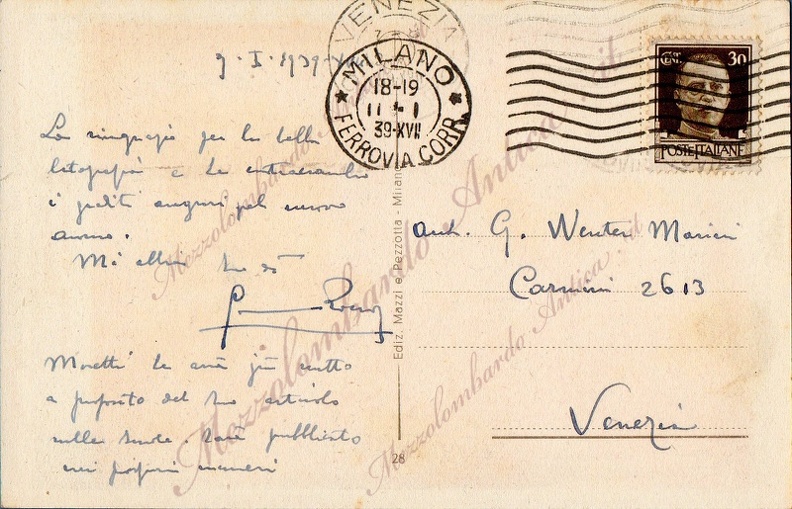 VENEZIA
9 · I · 1939 · XVII
MILANO
18-19
11 - 1
39-XVII
FERROVIA CORR.
CENT. 30
POSTE ITALIANE
La ringrazio per la bella
litografia e Le contraccambio
i graditi auguri pel nuovo
anno.
Mi abbia
Moretti Le avrà già scritto
a proposito del Suo articolo
sulle scuole. Sarà pubblicato
nei prossimi numeri
Ediz. Mazzi e Pezzotta - Milano
28
Arch. G. Wenter Marini
Carmini 2613
Venezia
Mezzolombardo Antica .it
Mezzolombardo Antica .it
Mezzolombardo Antica .it